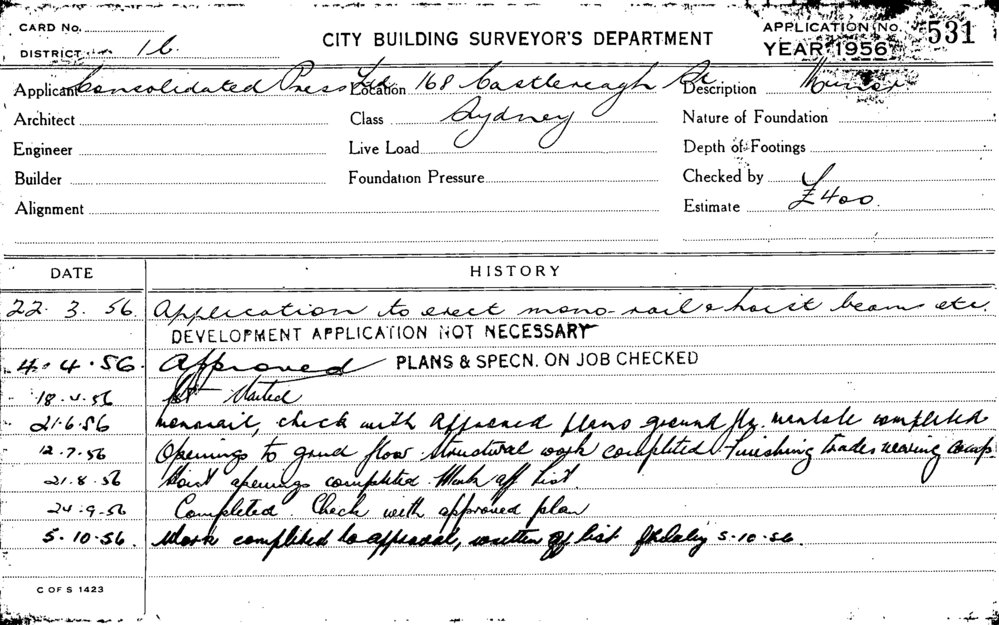 CARD No.
DISTRICT 16
CITY BUILDING SURVEYOR'S DEPARTMENT
APPLICATION No. 531
YEAR 1956
Applicant Consolidated Press Ltd Location 168 Castlereagh St Description Minor
Architect Class Sydney Nature of Foundation
Engineer Live Load Depth of Footings
Builder Foundation Pressure Checked by
Alignment Estimate £400
DATE HISTORY
22. 3. 56 Application to erect mono-rail & hoist beams etc.
DEVELOPMENT APPLICATION NOT NECESSARY
4. 4. 56. Approved PLANS & SPECN. ON JOB CHECKED
18.4.56 Not Started
21.6.56 monorail, check with approved plans ground flr. completed
12.7.56 Openings to grnd floor structural work completed finishing trades nearing comp
21.8.56 Hoist openings completed. Mark off list.
24-9-56 Completed. Check with approved plan
5.10.56. Work completed to approval, written off list 5-10-56.
C OF S 1423